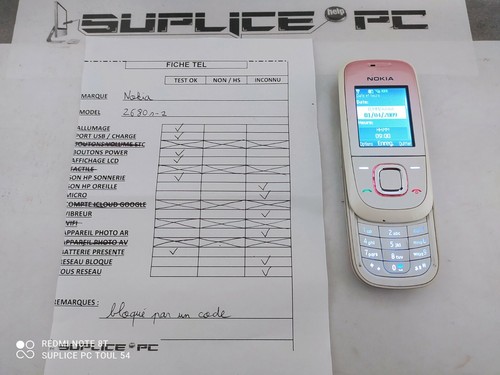 SUPLICE help PC
FICHE TEL
TEST OK NON / HS INCONNU
MARQUE Nokia
MODEL 2680s-2
ALLUMAGE
PORT USB / CHARGE
BOUTONS VOLUME ETC
BOUTONS POWER
AFFICHAGE LCD
TACTILE
SON HP SONNERIE
SON HP OREILLE
MICRO
COMPTE ICLOUD GOOGLE
VIBREUR
WIFI
APPAREIL PHOTO AR
APPAREIL PHOTO AV
BATTERIE PRESENTE
RESEAU BLOQUE
TOUS RESEAU
REMARQUES :
bloqué par un code
SUPLICE PC
NOKIA
Date et heure
Date:
01/01/2009
Heure:
00:00
Options Enreg. Quitter
REDMI NOTE 8T
SUPLICE PC TOUL 54